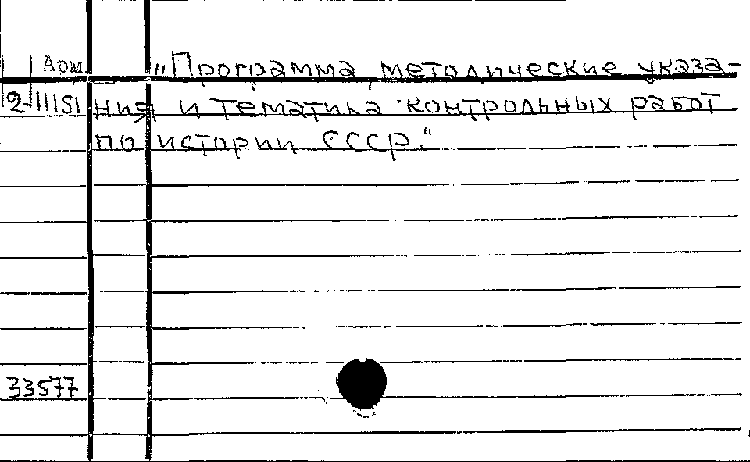 Арм. "Программа, методические указа-
2-11151 ния и тематика контрольных работ
по истории СССР."
33577